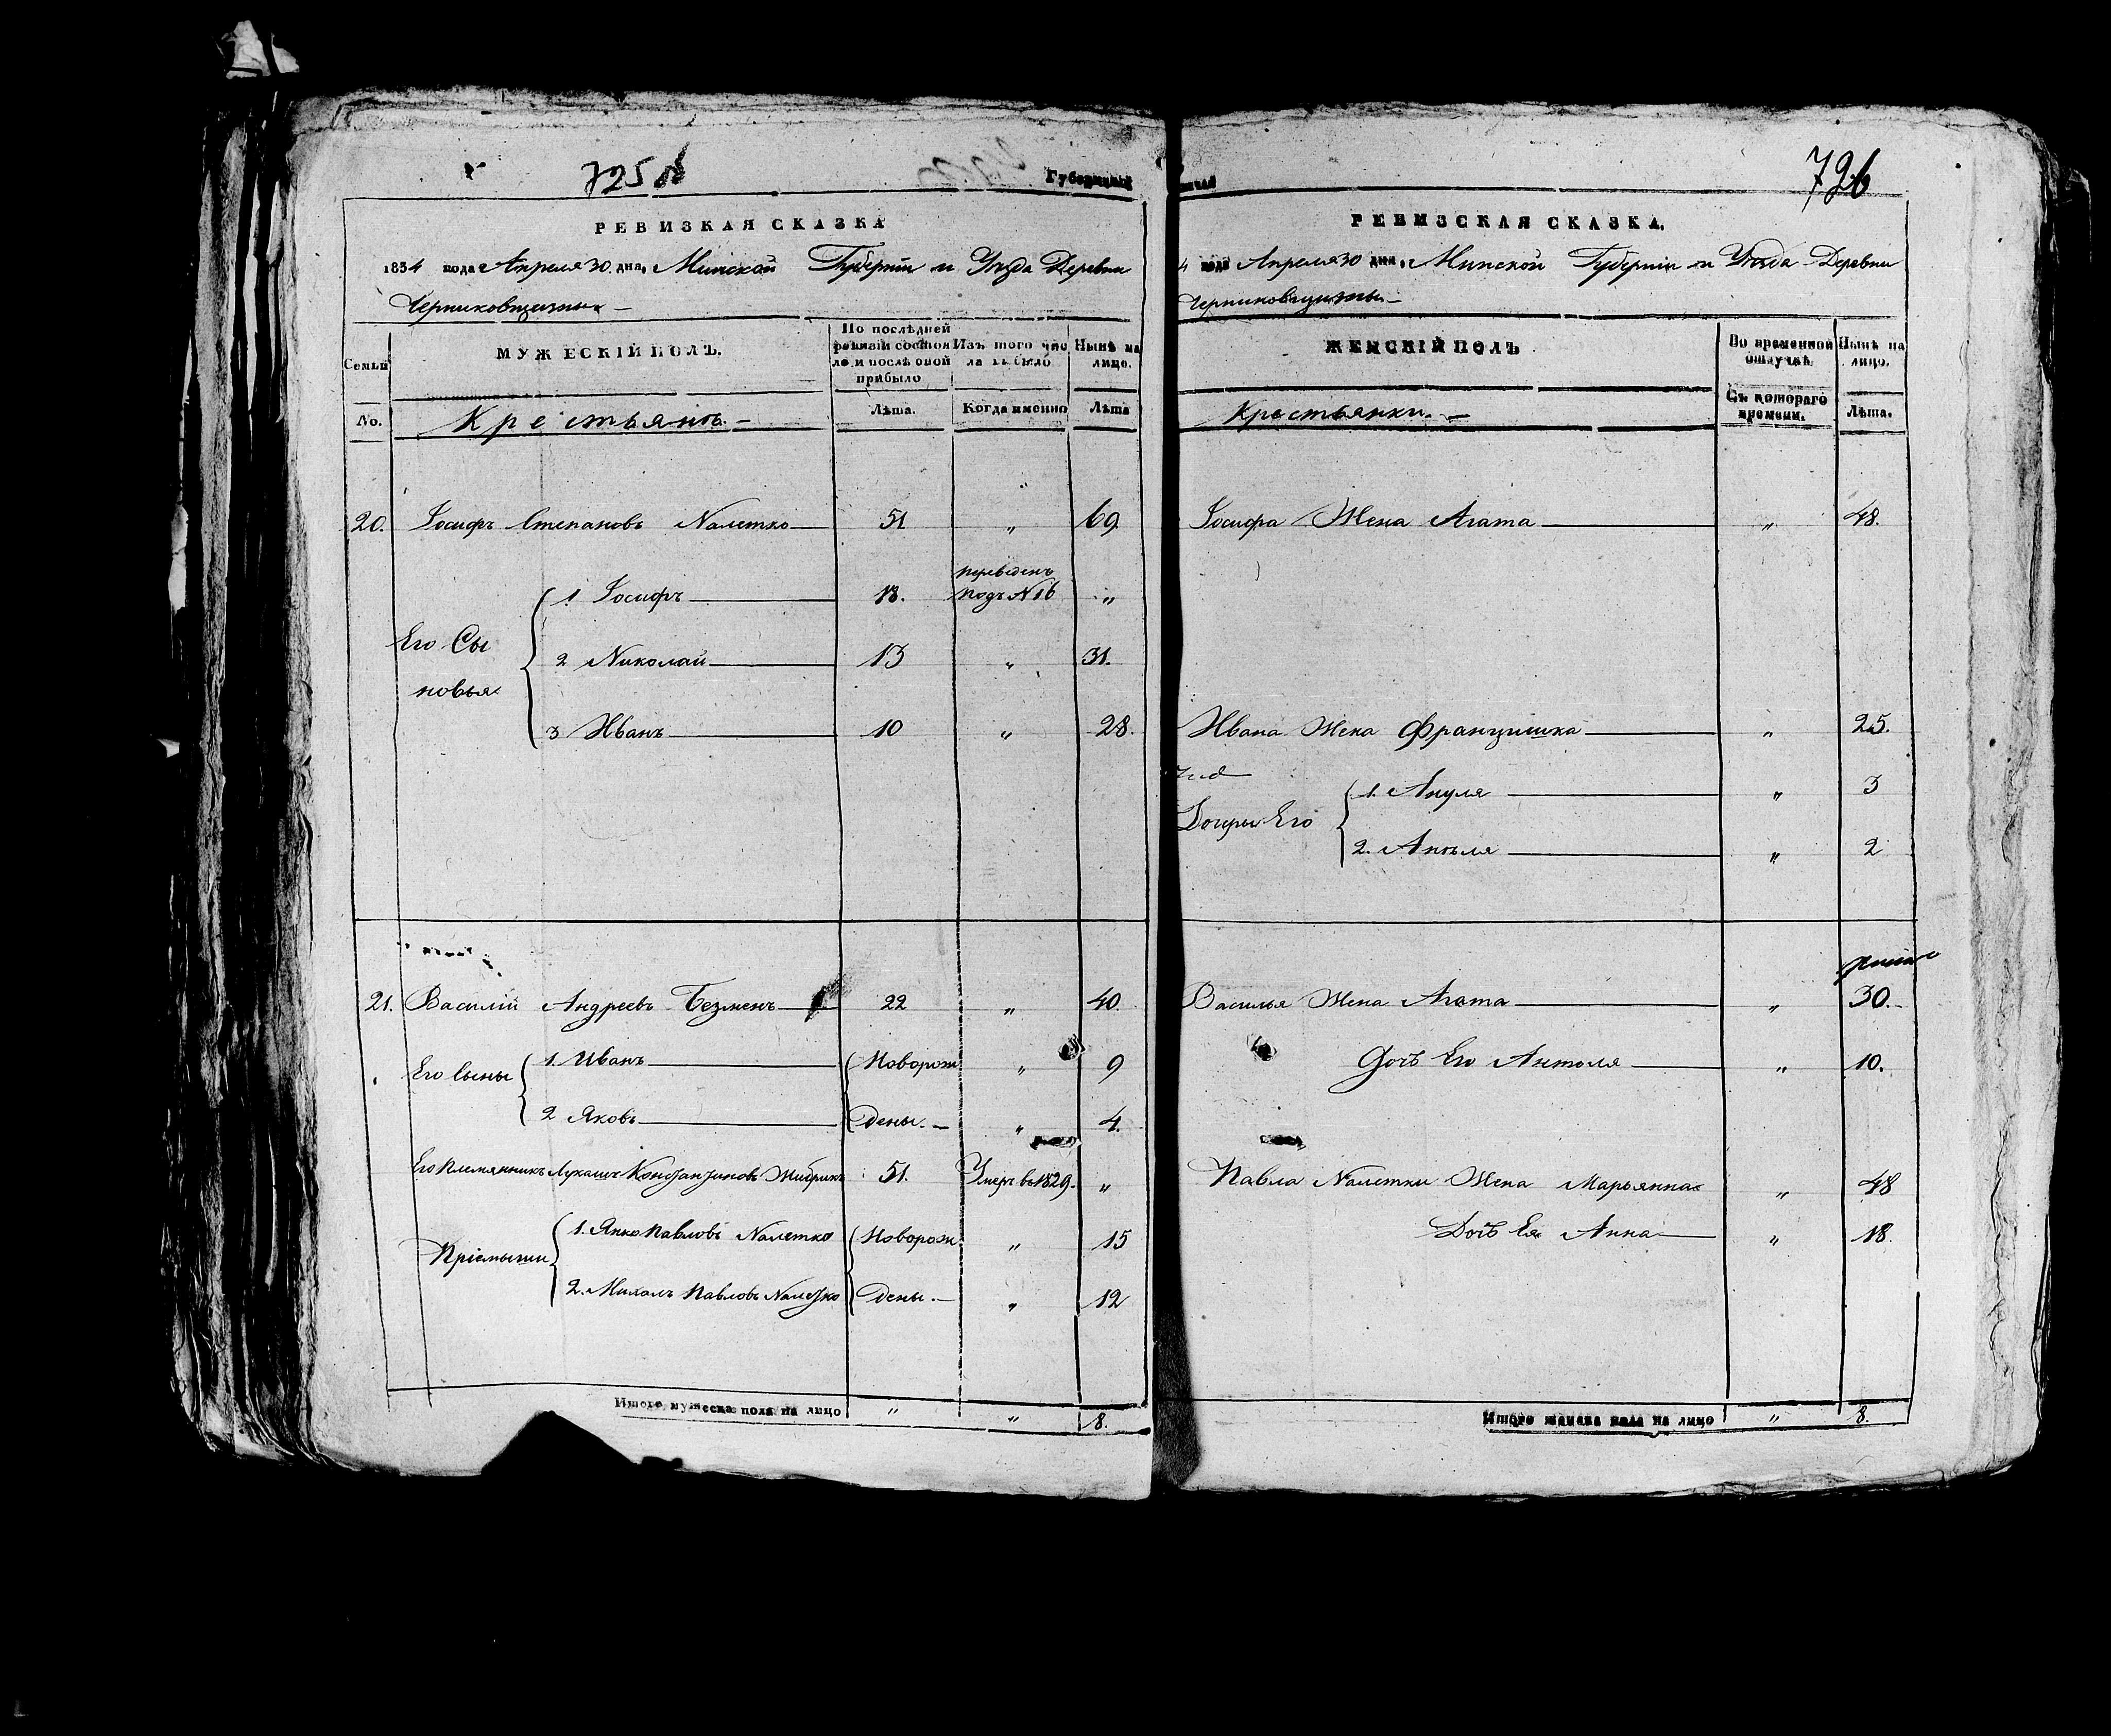 725 об
Губерниій
РЕВИЗКАЯ СКАЗКА
1834 года Апреля 30 дня, Минской Губерніи и Уѣзда Деревни
Черниковщизны
Семьи
МУЖЕСКІЙ ПОЛЪ.
По послѣдней ревизіи состояло и послѣ оной прибыло
Изъ того числа выбыло
Нынѣ на лицо.
No.
Крестьянъ.
Лѣта.
Когда именно
Лѣта
20. Іосифъ Степановъ Налетко 51 " 69
Его Сыновья
1 Іосифъ 18. переведенъ подъ N 16 "
2 Николай 13 " 31.
3 Иванъ 10 " 28.
21. Василій Андреевъ Безменъ 22 " 40.
Его Сыны
1. Иванъ Новорож " 9
2 Яковъ Дены. " 4.
Его Племянникъ Лукашъ Константиновъ Жибрикъ 51. Умеръ в 1829. "
Пріемыши
1. Янко Павловъ Налетко Новорож " 15
2. Михалъ Павловъ Налетко Дены. " 12
Итого мужеска пола на лицо " " 8.
726
РЕВИЗСКАЯ СКАЗКА.
4 года Апреля 30 дня, Минской Губерніи и Уѣзда Деревни
Черниковщизны
ЖЕНСКІЙ ПОЛЪ
Во временной отлучкѣ
Нынѣ на лицо.
Крестьянки.
Съ котораго времени.
Лѣта.
Іосифа Жена Агата " 48.
Ивана Жена Францишка " 25.
Дочры Его
1. Ануля " 3
2. Анѣля " 2
Василья Жена Агата " 30.
Дочъ Его Антоля " 10.
Павла Налетки Жена Марьянна " 48
Дочъ Ея Анна " 18
Итого женска пола на лицо " 8.